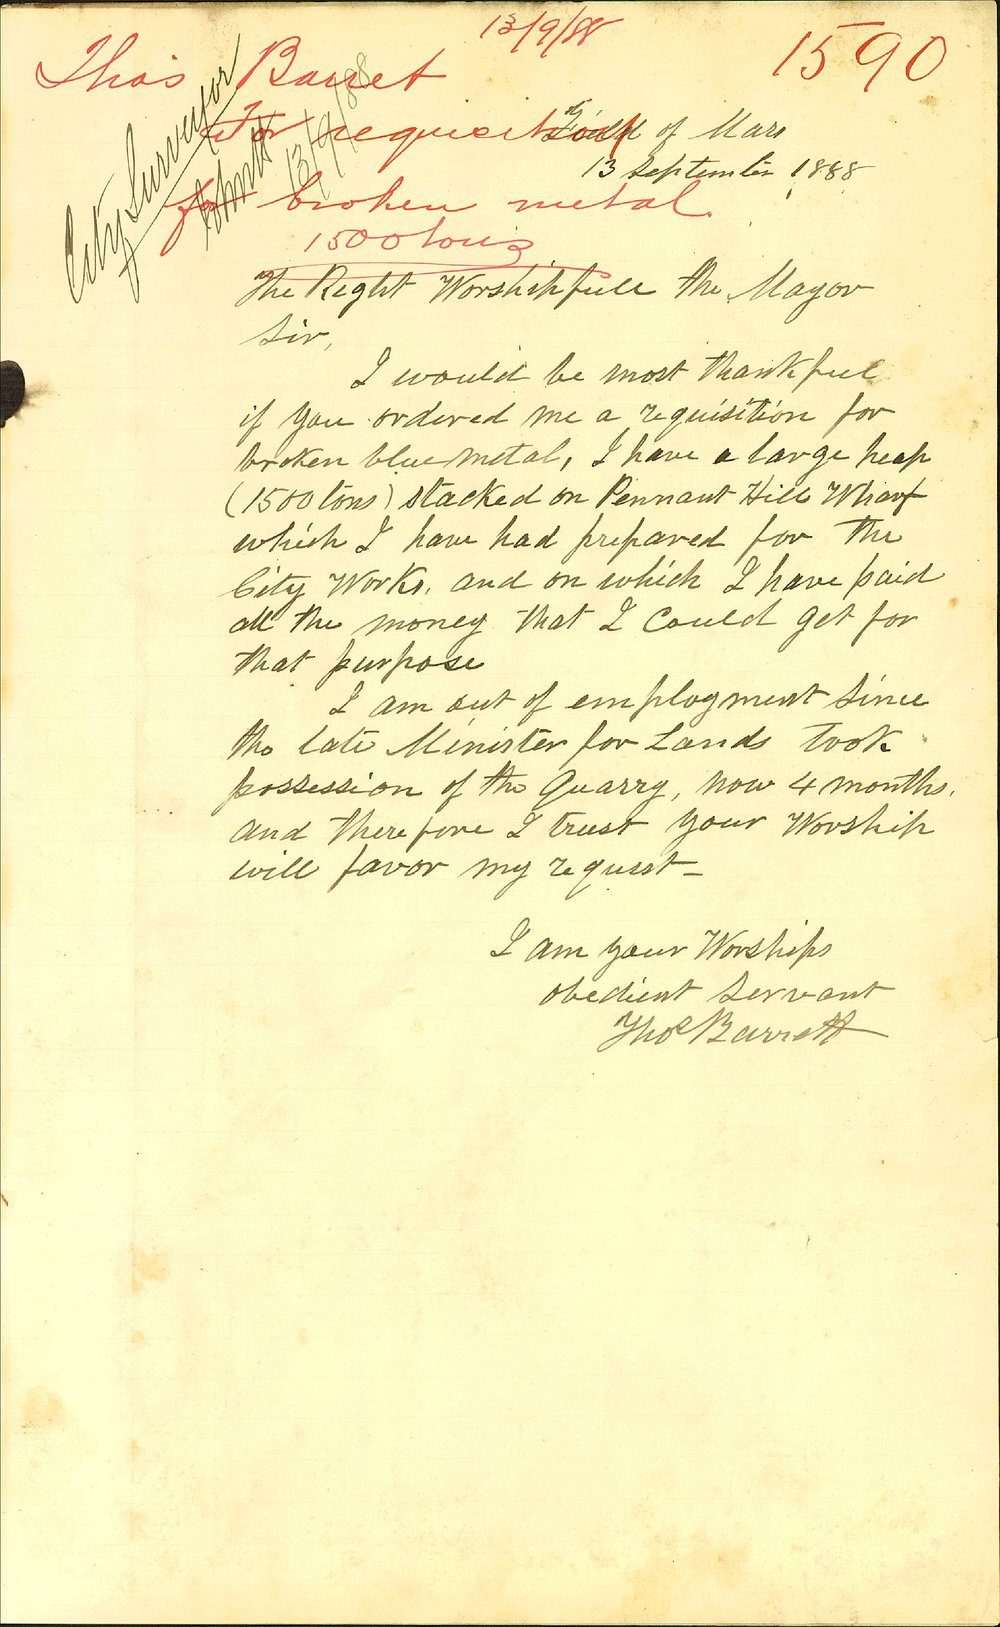 13/9/88
1590
Thos Barret
For requisition
for broken metal
1500 tons
City Surveyor
13/9/88
Field of Mars
13 September 1888
The Right Worshipfull the Mayor
Sir,
I would be most thankful
if you ordered me a requisition for
broken blue metal, I have a large heap
(1500 tons) stacked on Pennant Hill Wharf
which I have had prepared for the
City Works, and on which I have paid
all the money that I could get for
that purpose
I am out of employment since
the late Minister for Lands took
possession of the Quarry, now 4 months,
and therefore I trust your Worship
will favor my request—
I am your Worships
obedient servant
Thos Barrett